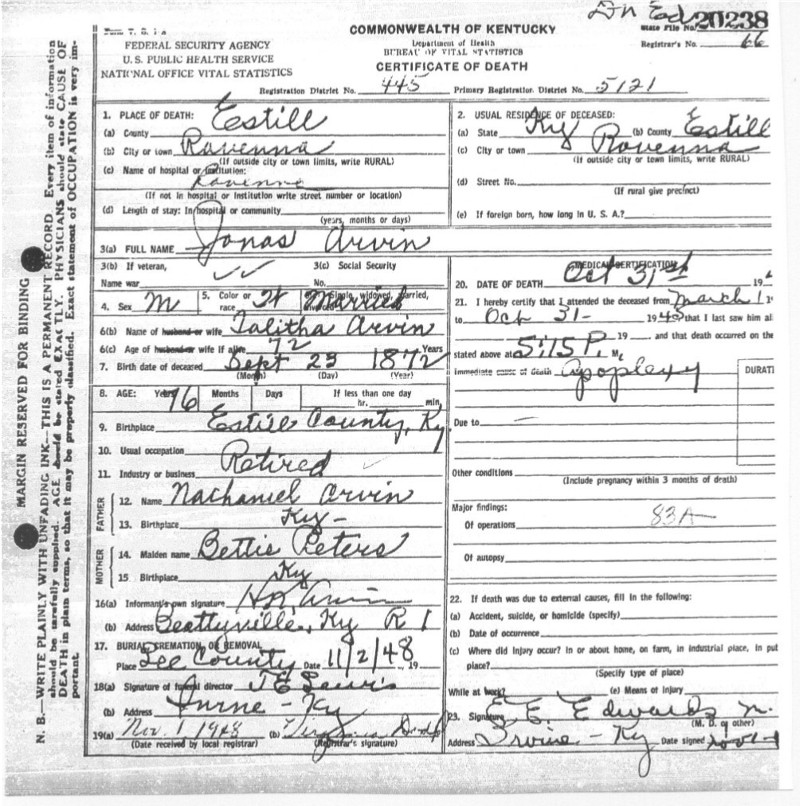 Dn Ed
State File No. 20238
Registrar's No. 66
COMMONWEALTH OF KENTUCKY
Department of Health
BUREAU OF VITAL STATISTICS
CERTIFICATE OF DEATH
FEDERAL SECURITY AGENCY
U. S. PUBLIC HEALTH SERVICE
NATIONAL OFFICE VITAL STATISTICS
Registration District No. 445 Primary Registration District No. 5121
MARGIN RESERVED FOR BINDING
N. B.—WRITE PLAINLY WITH UNFADING INK—THIS IS A PERMANENT RECORD. Every item of information
should be carefully supplied. AGE should be stated EXACTLY. PHYSICIANS should state CAUSE OF
DEATH in plain terms, so that it may be properly classified. Exact statement of OCCUPATION is very im-
portant.
1. PLACE OF DEATH:
(a) County Estill
(b) City or town Ravenna
(If outside city or town limits, write RURAL)
(c) Name of hospital or institution:
Ravenna
(If not in hospital or institution write street number or location)
(d) Length of stay: In hospital or community
(years, months or days)
2. USUAL RESIDENCE OF DECEASED:
(a) State Ky (b) County Estill
(c) City or town Ravenna
(If outside city or town limits, write RURAL)
(d) Street No.
(If rural give precinct)
(e) If foreign born, how long in U. S. A.?
3(a) FULL NAME Jonas Arvin
3(b) If veteran,
Name war
3(c) Social Security
No.
4. Sex M
5. Color or race W
Single, widowed, married,
Married
6(b) Name of husband or wife Talitha Arvin
6(c) Age of husband or wife if alive 72 Years
7. Birth date of deceased Sept 23 1872
(Month) (Day) (Year)
8. AGE: Years 76 Months Days If less than one day
hr. min.
9. Birthplace Estill County, Ky.
10. Usual occupation
11. Industry or business Retired
FATHER
12. Name Nathaniel Arvin
13. Birthplace Ky-
MOTHER
14. Maiden name Bettie Peters
15. Birthplace Ky
16(a) Informant's own signature Arvin
(b) Address Beattyville, Ky R 1
17. BURIAL, CREMATION, OR REMOVAL
Place Lee County Date 11/2/48, 19
18(a) Signature of funeral director J E Lewis
(b) Address Irvine - Ky
19(a) Nov. 1 1948 (b)
(Date received by local registrar) (Registrar's signature)
MEDICAL CERTIFICATION
20. DATE OF DEATH Oct 31st 19
21. I hereby certify that I attended the deceased from March 1 19
to Oct 31- 1948 that I last saw him ali
19 and that death occurred on the
stated above at 5:15 P. M.
Immediate cause of death Apoplexy
DURATI
Due to
Other conditions
(Include pregnancy within 3 months of death)
Major findings:
Of operations 83A
Of autopsy
22. If death was due to external causes, fill in the following:
(a) Accident, suicide, or homicide (specify)
(b) Date of occurrence
(c) Where did injury occur? In or about home, on farm, in industrial place, in pub
place?
(Specify type of place)
While at work? (e) Means of injury
23. Signature E. E. Edwards M.
(M. D. or other)
Address Irvine - Ky Date signed Nov 1